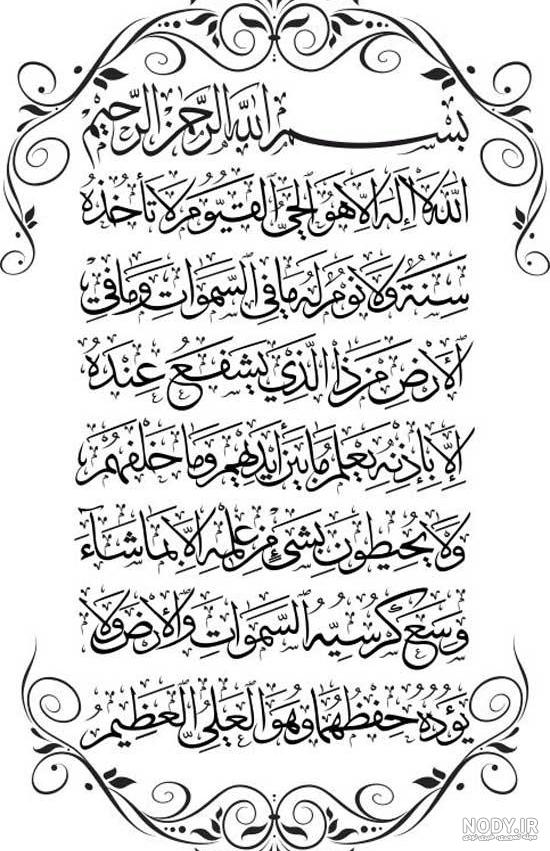 بسم الله الرحمن الرحيم
الله لا إله إلا هو الحي القيوم لا تأخذه
سنة ولا نوم له ما في السموات وما في
الأرض من ذا الذي يشفع عنده
إلا بإذنه يعلم ما بين أيديهم وما خلفهم
ولا يحيطون بشيء من علمه إلا بما شاء
وسع كرسيه السموات والأرض ولا
يؤده حفظهما وهو العلي العظيم
NODY.IR